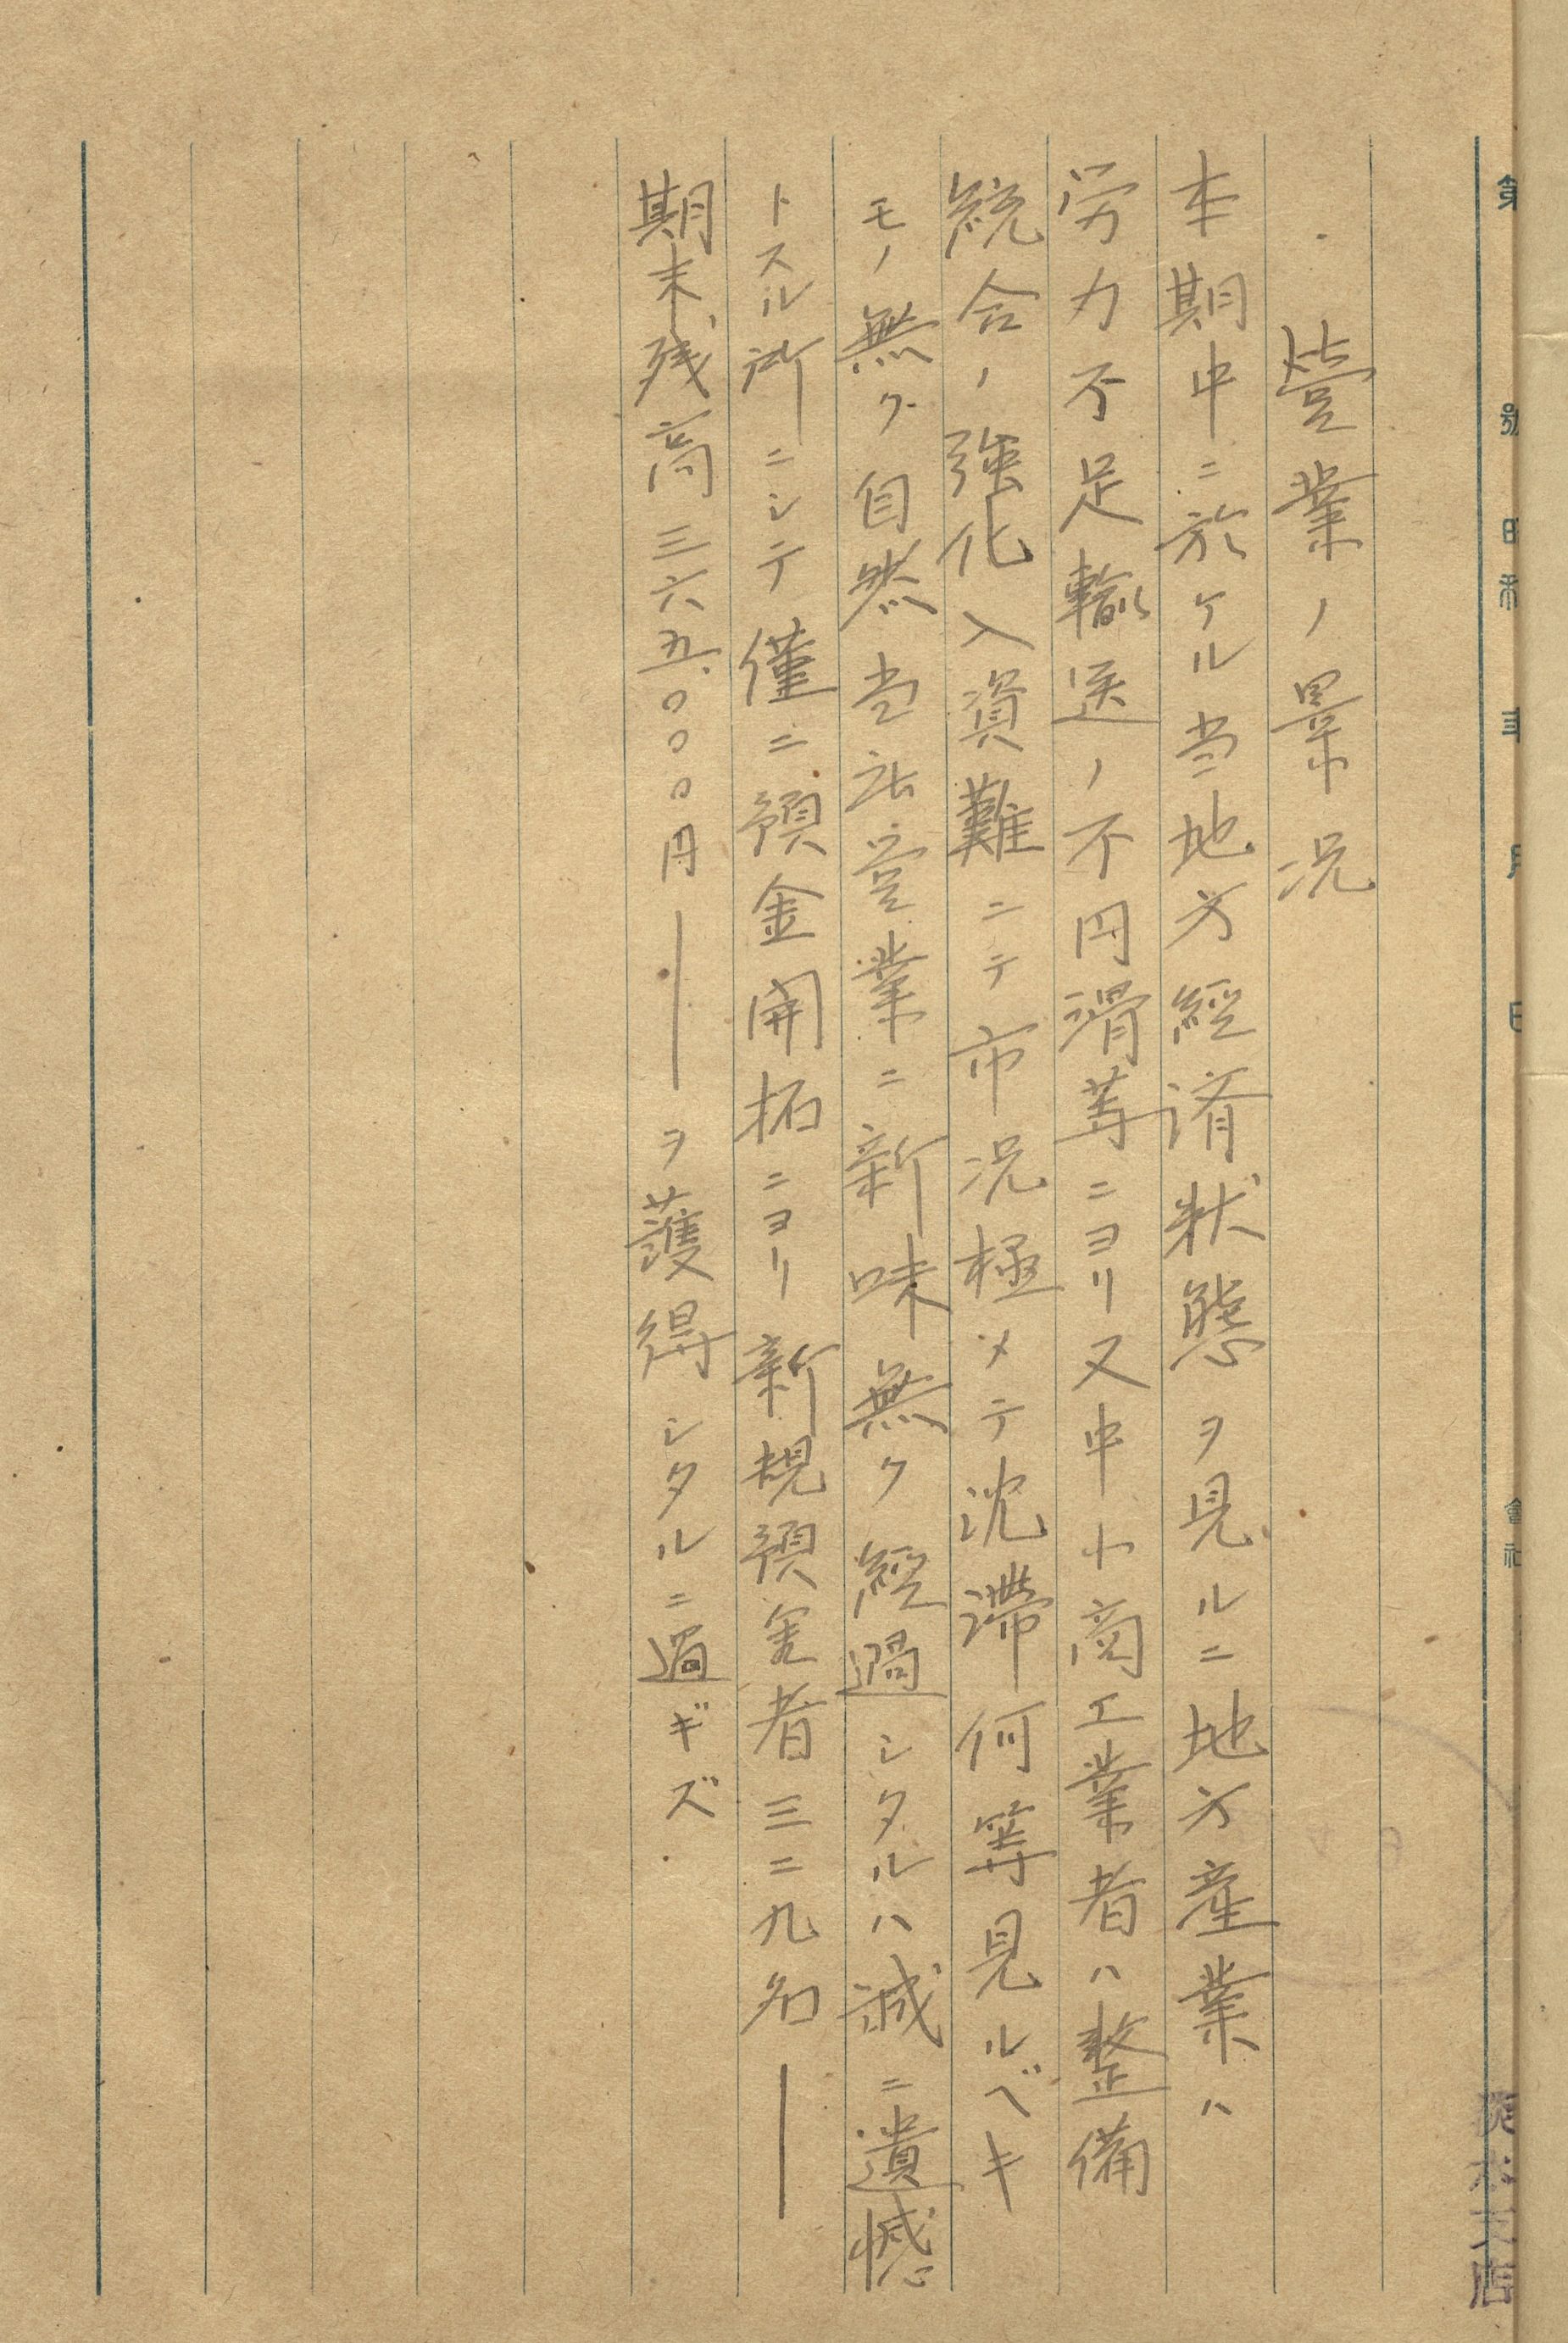 第　號　昭和　年　月　日　會社
營業ノ景況
本期中ニ於ケル当地方經済狀態ヲ見ルニ地方産業ハ
労力不足輸送ノ不円滑等ニヨリ又中小商工業者ハ整備
統合ノ強化入資難ニテ市況極メテ沈滞何等見ルベキ
モノ無ク自然当社営業ニ新味無ク經過シタルハ誠ニ遺憾
トスル所ニシテ僅ニ預金開拓ニヨリ新規預金者三二九名―
期末残高三六五、〇〇〇円―ヲ護得シタルニ過ギズ.
支店